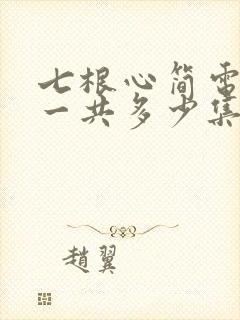 七根心简電
一共多少集
趙翼